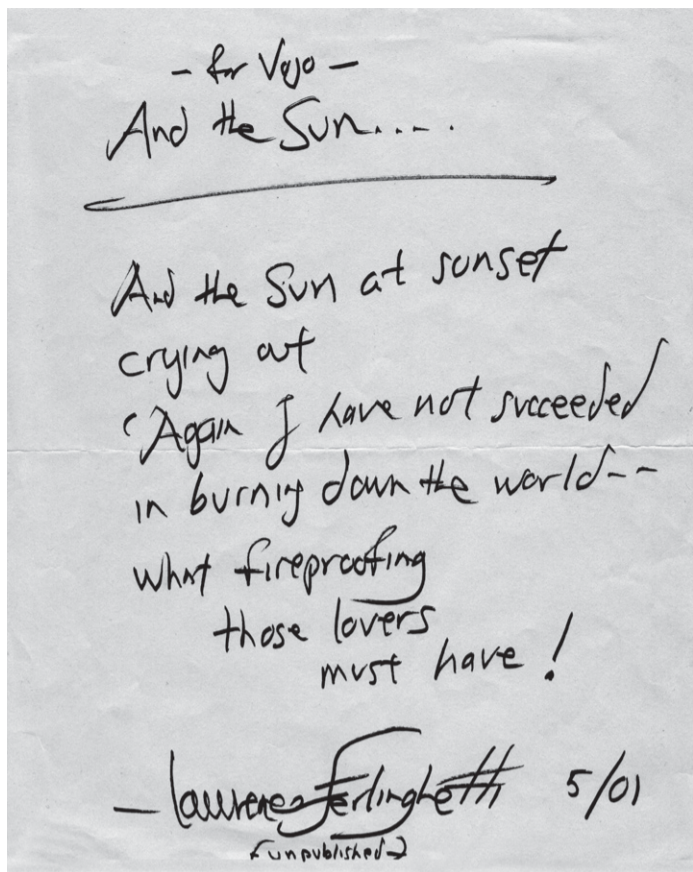 - for Vojo -
And the Sun.....
And the Sun at sunset
crying out
'Again I have not succeeded
in burning down the world--
what fireproofing
those lovers
must have!
- Lawrence Ferlinghetti 5/01
(unpublished)